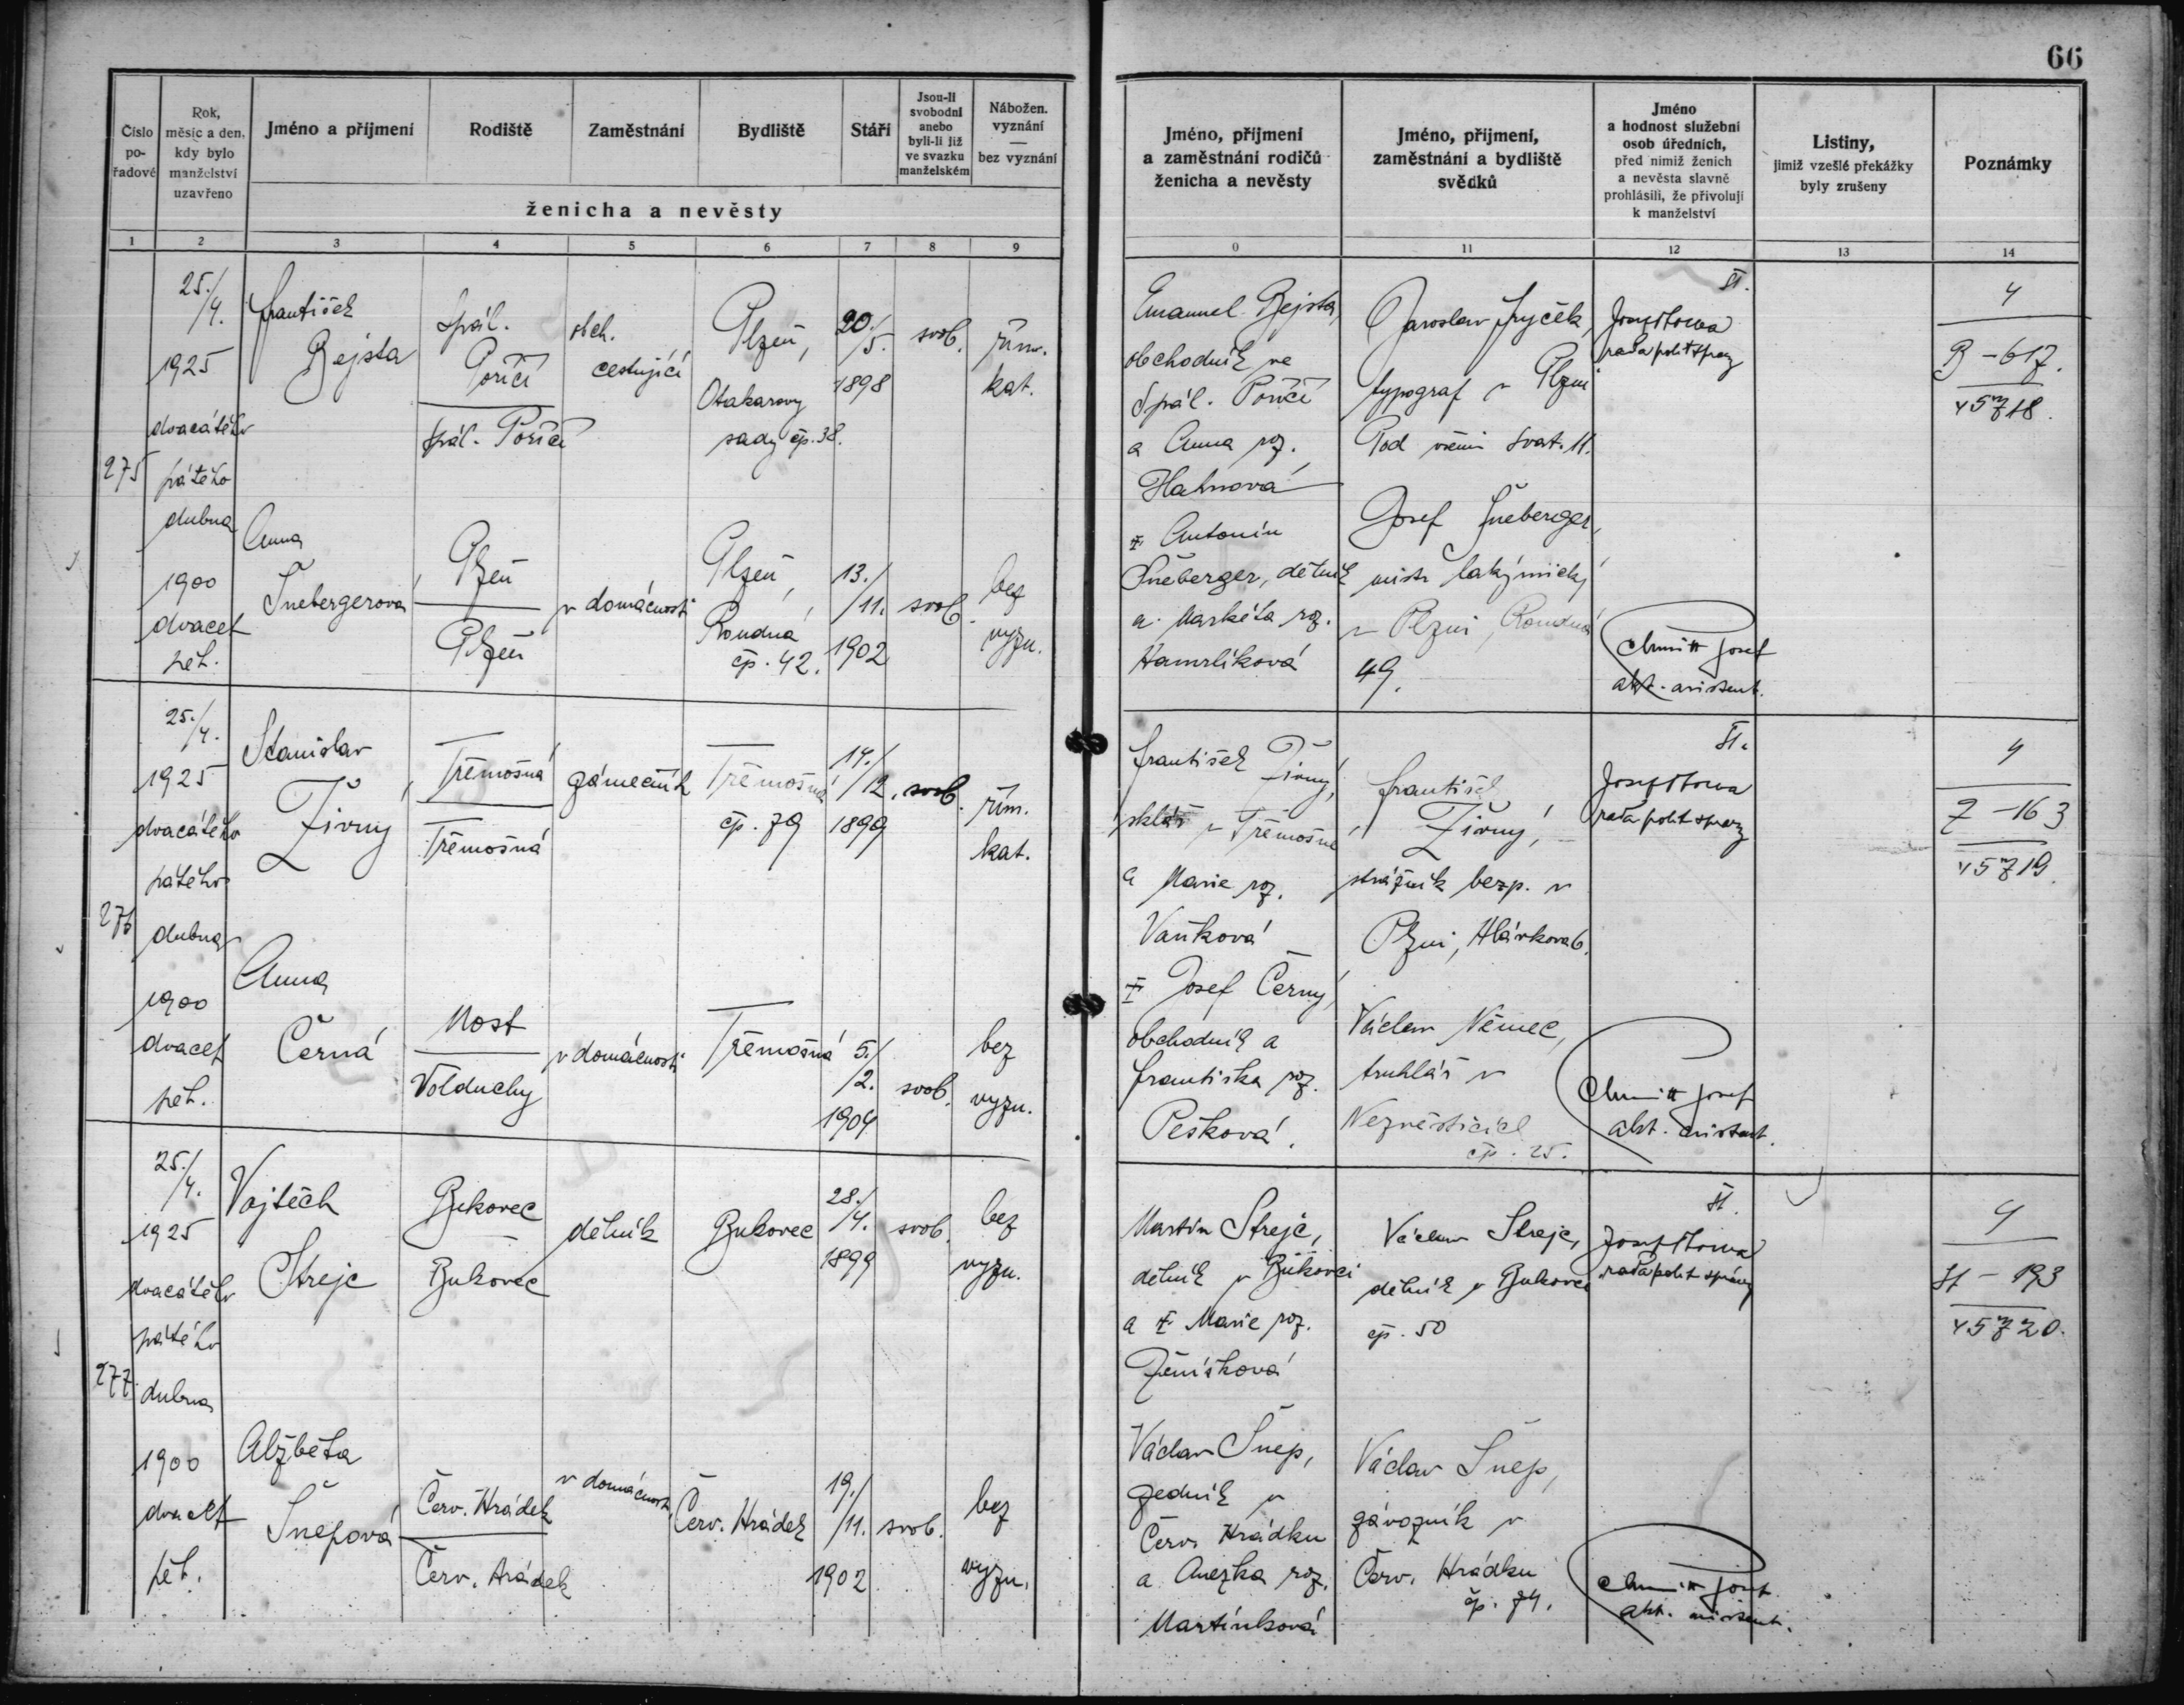 66
Číslo
po-
řadové
Rok,
měsíc a den,
kdy bylo
manželství
uzavřeno
Jméno a příjmení
Rodiště
Zaměstnání
Bydliště
Stáří
Jsou-li
svobodni
anebo
byli-li již
ve svazku
manželském
Nábožen.
vyznání
—
bez vyznání
ženicha a nevěsty
1 2 3 4 5 6 7 8 9
Jméno, příjmení
a zaměstnání rodičů
ženicha a nevěsty
Jméno, příjmení,
zaměstnání a bydliště
svědků
Jméno
a hodnost služební
osob úředních,
před nimiž ženich
a nevěsta slavně
prohlásili, že přivolují
k manželství
Listiny,
jimiž vzešlé překážky
byly zrušeny
Poznámky
0 11 12 13 14
275
25./
4.
1925
dvacátého
pátého
dubna
1900
dvacet
pět.
František
Bejsta
Spál.
Poříčí
Spál. Poříčí
obch.
cestující
Plzeň,
Otakarovy
sady čp. 38.
20./
5.
1898
svob.
řím.
kat.
Anna
Šnebergerova
Plzeň
Plzeň
v domácnosti
Plzeň,
Roudná
čp. 42.
13./
11.
1902
svob.
bez
vyzn.
Emanuel Bejsta,
obchodník ve
Spál. Poříčí
a Anna roz.
Hahnová
Antonín
Šneberger, dělník
a Markéta roz.
Hamrlíková
Jaroslav
typograf v Plzni
Pod všemi svat. 11.
Josef Šneberger,
mistr
v Plzni, Roudná
49.
Josef
rada polit správy
Josef
akt. assistent.
4
B – 617.
276
25./
4.
1925
dvacátého
pátého
dubna
1900
dvacet
pět.
Stanislav
Živný
Třemošná
Třemošná
zámečník
Třemošná
čp. 79
14./
12.
1899
svob.
řím.
kat.
Anna
Černá
Most
Volduchy
v domácnosti
Třemošná
5./
2.
1904
svob.
bez
vyzn.
František Živný,
sklář v Třemošné
a Marie roz.
Vaňková
Josef Černý,
obchodník a
Františka roz.
Pešková.
František
Živný,
strážník bezp. v
Plzni, Hlávkova 6.
Václav Němec,
truhlář v
čp. 25.
Josef
rada polit správy
Josef
akt. assistent.
4
Ž – 163
277
25./
4.
1925
dvacátého
pátého
dubna
1900
dvacet
pět.
Vojtěch
Strejc
Bukovec
Bukovec
dělník
Bukovec
28./
4.
1899
svob.
bez
vyzn.
Alžběta
Šnepová
Červ. Hrádek
Červ. Hrádek
v domácnosti
Červ. Hrádek
19./
11.
1902
svob.
bez
vyzn.
Martin Strejc,
dělník v Bukovci
a Marie roz.
Ženíšková
Václav Šnep,
zedník v
Červ. Hrádku
a Anežka roz.
Martínková
Václav Strejc,
dělník v Bukovci
čp. 50
Václav Šnep,
závozník v
Červ. Hrádku
čp. 74.
Josef
rada polit správy
Josef
akt. assistent.
4
St – 193